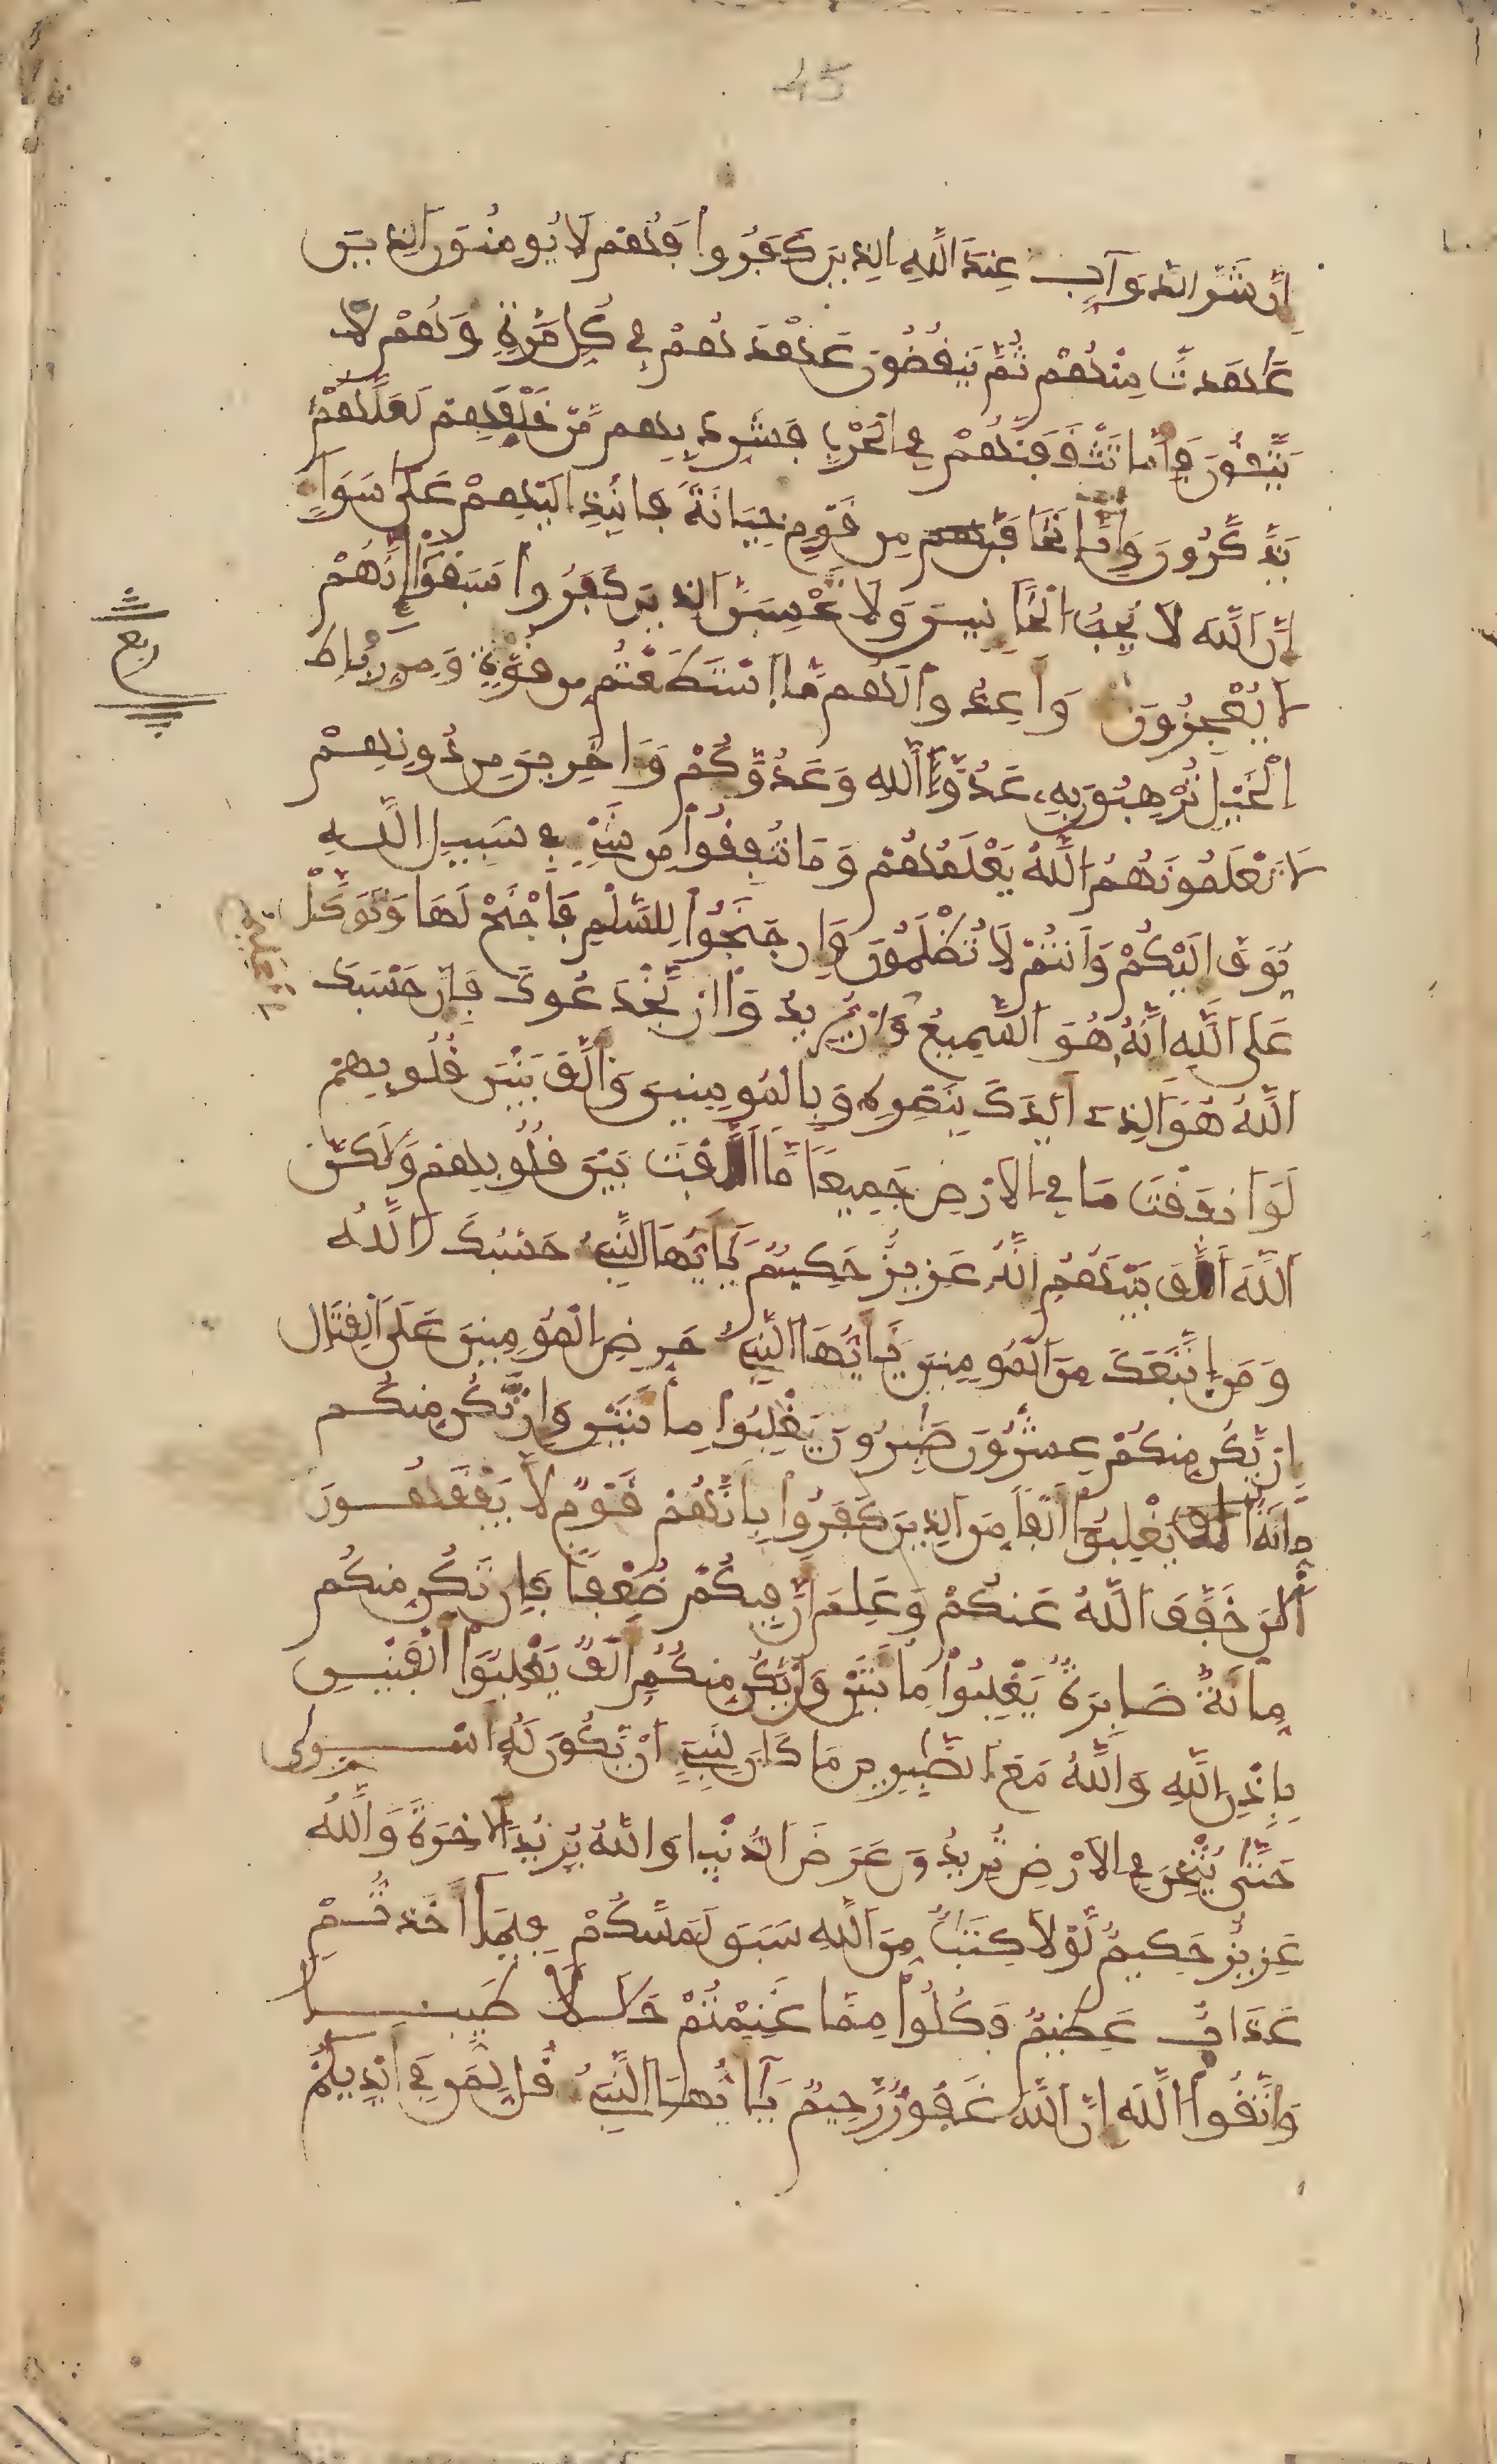 45
إِنَّ شَرَّ الدَّوَآبِّ عِندَ اَللَّهِ الذِينَ كَفَرُواْ فَهُمْ لَا يُومِنُونَ الذِينَ
عَٰهَدتَّ مِنْهُمْ ثُمَّ يَنقُضُونَ عَهْدَهُمْ فِي كُلِّ مَرَّةٍ وَهُمْ لَا
يَتَّقُونَ فَإِمَّا تَثْقَفَنَّهُمْ فِي الْحَرْبِ فَشَرِّدْ بِهِم مَّنْ خَلْفَهُمْ لَعَلَّهُمْ
يَذَّكَّرُونَ وَإِمَّا تَخَافَنَّ مِن قَوْمٍ خِيَانَةً فَانۢبِذِ اِلَيْهِمْ عَلَىٰ سَوَآءٍ
اِنَّ اَللَّهَ لَا يُحِبُّ الْخَآئِنِينَ وَلَا تَحْسِبَنَّ الذِينَ كَفَرُواْ سَبَقُوٓاْ إِنَّهُمْ
لَا يُعْجِزُونَ وَأَعِدُّواْ لَهُم مَّا اَسْتَطَعْتُم مِّن قُوَّةٍ وَمِن رِّبَاطِ
ربع
اِلْخَيْلِ تُرْهِبُونَ بِهِۦ عَدُوَّ اَللَّهِ وَعَدُوَّكُمْ وَءَاخَرِينَ مِن دُونِهِمْ
لَا تَعْلَمُونَهُمُ اللَّهُ يَعْلَمُهُمْ وَمَا تُنفِقُواْ مِن شَيْءٍ فِي سَبِيلِ اِللَّهِ
يُوَفَّ إِلَيْكُمْ وَأَنتُمْ لَا تُظْلَمُونَ وَإِن جَنَحُواْ لِلسَّلْمِ فَاجْنَحْ لَهَا وَتَوَكَّلْ
عَلَى اَللَّهِ إِنَّهُ هُوَ اَلسَّمِيعُ وَإِنْ يُّرِيدُوٓاْ أَنْ يَّخْدَعُوكَ فَإِنَّ حَسْبَكَ
اَللَّهُ هُوَ اَلذِےٓ أَيَّدَكَ بِنَصْرِهِ وَبِالْمُومِنِينَ وَأَلَّفَ بَيْنَ قُلُوبِهِمْ
لَوَ اَنفَقْتَ مَا فِي الْأَرْضِ جَمِيعاً مَّا أَلَّفْتَ بَيْنَ قُلُوبِهِمْ وَلَٰكِنَّ
اَللَّهَ أَلَّفَ بَيْنَهُمْ إِنَّهُ عَزِيزٌ حَكِيمٌ يَٰٓأَيُّهَا اَلنَّبِيٓءُ حَسْبُكَ اَللَّهُ
وَمَنِ اِتَّبَعَكَ مِنَ اَلْمُومِنِينَ يَٰٓأَيُّهَا اَلنَّبِيٓءُ حَرِّضِ اِلْمُومِنِينَ عَلَى اَلْقِتَالِ
إِنْ يَّكُن مِّنكُمْ عِشْرُونَ صَٰبِرُونَ يَغْلِبُواْ مِاْئَتَيْنِ وَإِن تَكُن مِّنكُم
مِّاْئَةٌ يَغْلِبُوٓاْ أَلْفاً مِّنَ اَلذِينَ كَفَرُواْ بِأَنَّهُمْ قَوْمٌ لَّا يَفْقَهُونَ
اَلَٰنَ خَفَّفَ اَللَّهُ عَنكُمْ وَعَلِمَ أَنَّ فِيكُمْ ضُعْفاً فَإِن تَكُن مِّنكُم
مِّاْئَةٌ صَابِرَةٌ يَغْلِبُواْ مِاْئَتَيْنِ وَإِنْ يَّكُن مِّنكُمُ أَلْفٌ يَغْلِبُوٓاْ أَلْفَيْنِ
بِإِذْنِ اِللَّهِ وَاللَّهُ مَعَ اَلصَّٰبِرِينَ مَا كَانَ لِنَبِيٓءٍ اَنْ يَّكُونَ لَهُ أَسْرَىٰ
حَتَّىٰ يُثْخِنَ فِي الْأَرْضِ تُرِيدُونَ عَرَضَ اَلدُّنْيَا وَاللَّهُ يُرِيدُ اُلْأَخِرَةَ وَاللَّهُ
عَزِيزٌ حَكِيمٌ لَّوْلَا كِتَٰبٌ مِّنَ اَللَّهِ سَبَقَ لَمَسَّكُمْ فِيمَآ أَخَذتُّمْ
عَذَابٌ عَظِيمٌ فَكُلُواْ مِمَّا غَنِمْتُمْ حَلَٰلاً طَيِّباً
وَاتَّقُواْ اُللَّهَ إِنَّ اَللَّهَ غَفُورٌ رَّحِيمٌ يَٰٓأَيُّهَا اَلنَّبِيٓءُ قُل لِّمَن فِي أَيْدِيكُم